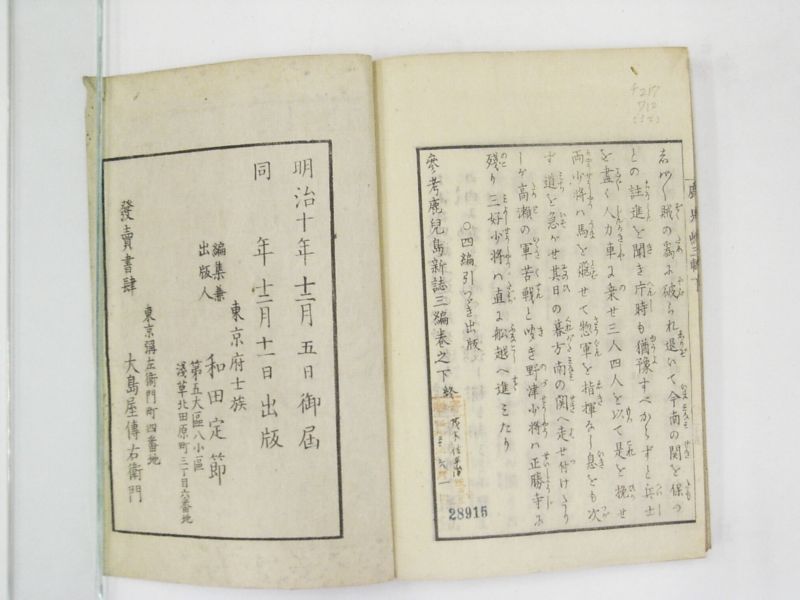 志ばし賊の為に破られ退いて今南の関を保つ
との註進を聞き片時も猶豫すべからずと兵士
を盡く人力車に乗せ三人四人を以て是を挽せ
両少将ハ馬を飛せて惣軍を指揮なし息をも次
ず道を急がせ其日の暮方南の関へ走せ付けたり
しが高瀬の軍苦戦と聞き野津少将ハ正勝寺に
残り三好少将ハ直に船越へ進ミたり
○四編引つゞき出版
參考鹿兒島新誌三編卷之下終
28915
明治十年十二月五日御届
同年十二月十一日出版
編集兼
出版人
東京府士族
和田定節
第五大區八小區
淺草北田原町三丁目六番地
發賣書肆
東京彌左衛門町四番地
大島屋傳右衛門